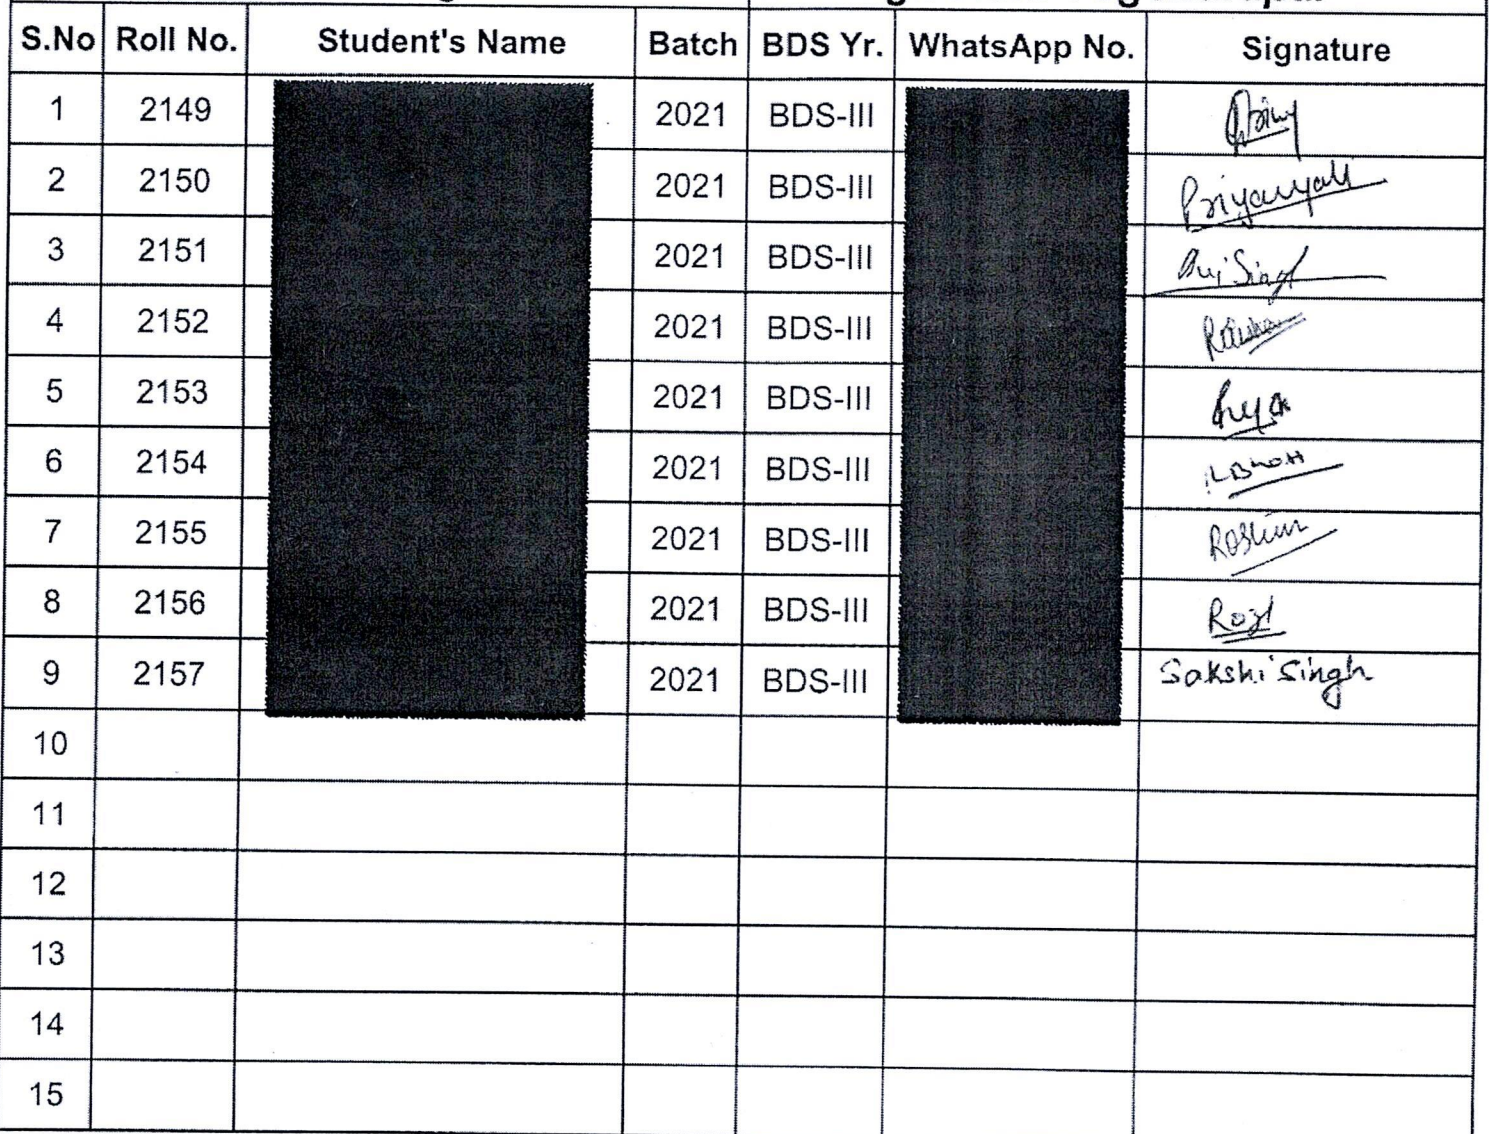 S.No Roll No. Student's Name Batch BDS Yr. WhatsApp No. Signature
1 2149 2021 BDS-III
2 2150 2021 BDS-III
3 2151 2021 BDS-III
4 2152 2021 BDS-III
5 2153 2021 BDS-III
6 2154 2021 BDS-III
7 2155 2021 BDS-III
8 2156 2021 BDS-III
9 2157 2021 BDS-III Sakshi Singh
10
11
12
13
14
15